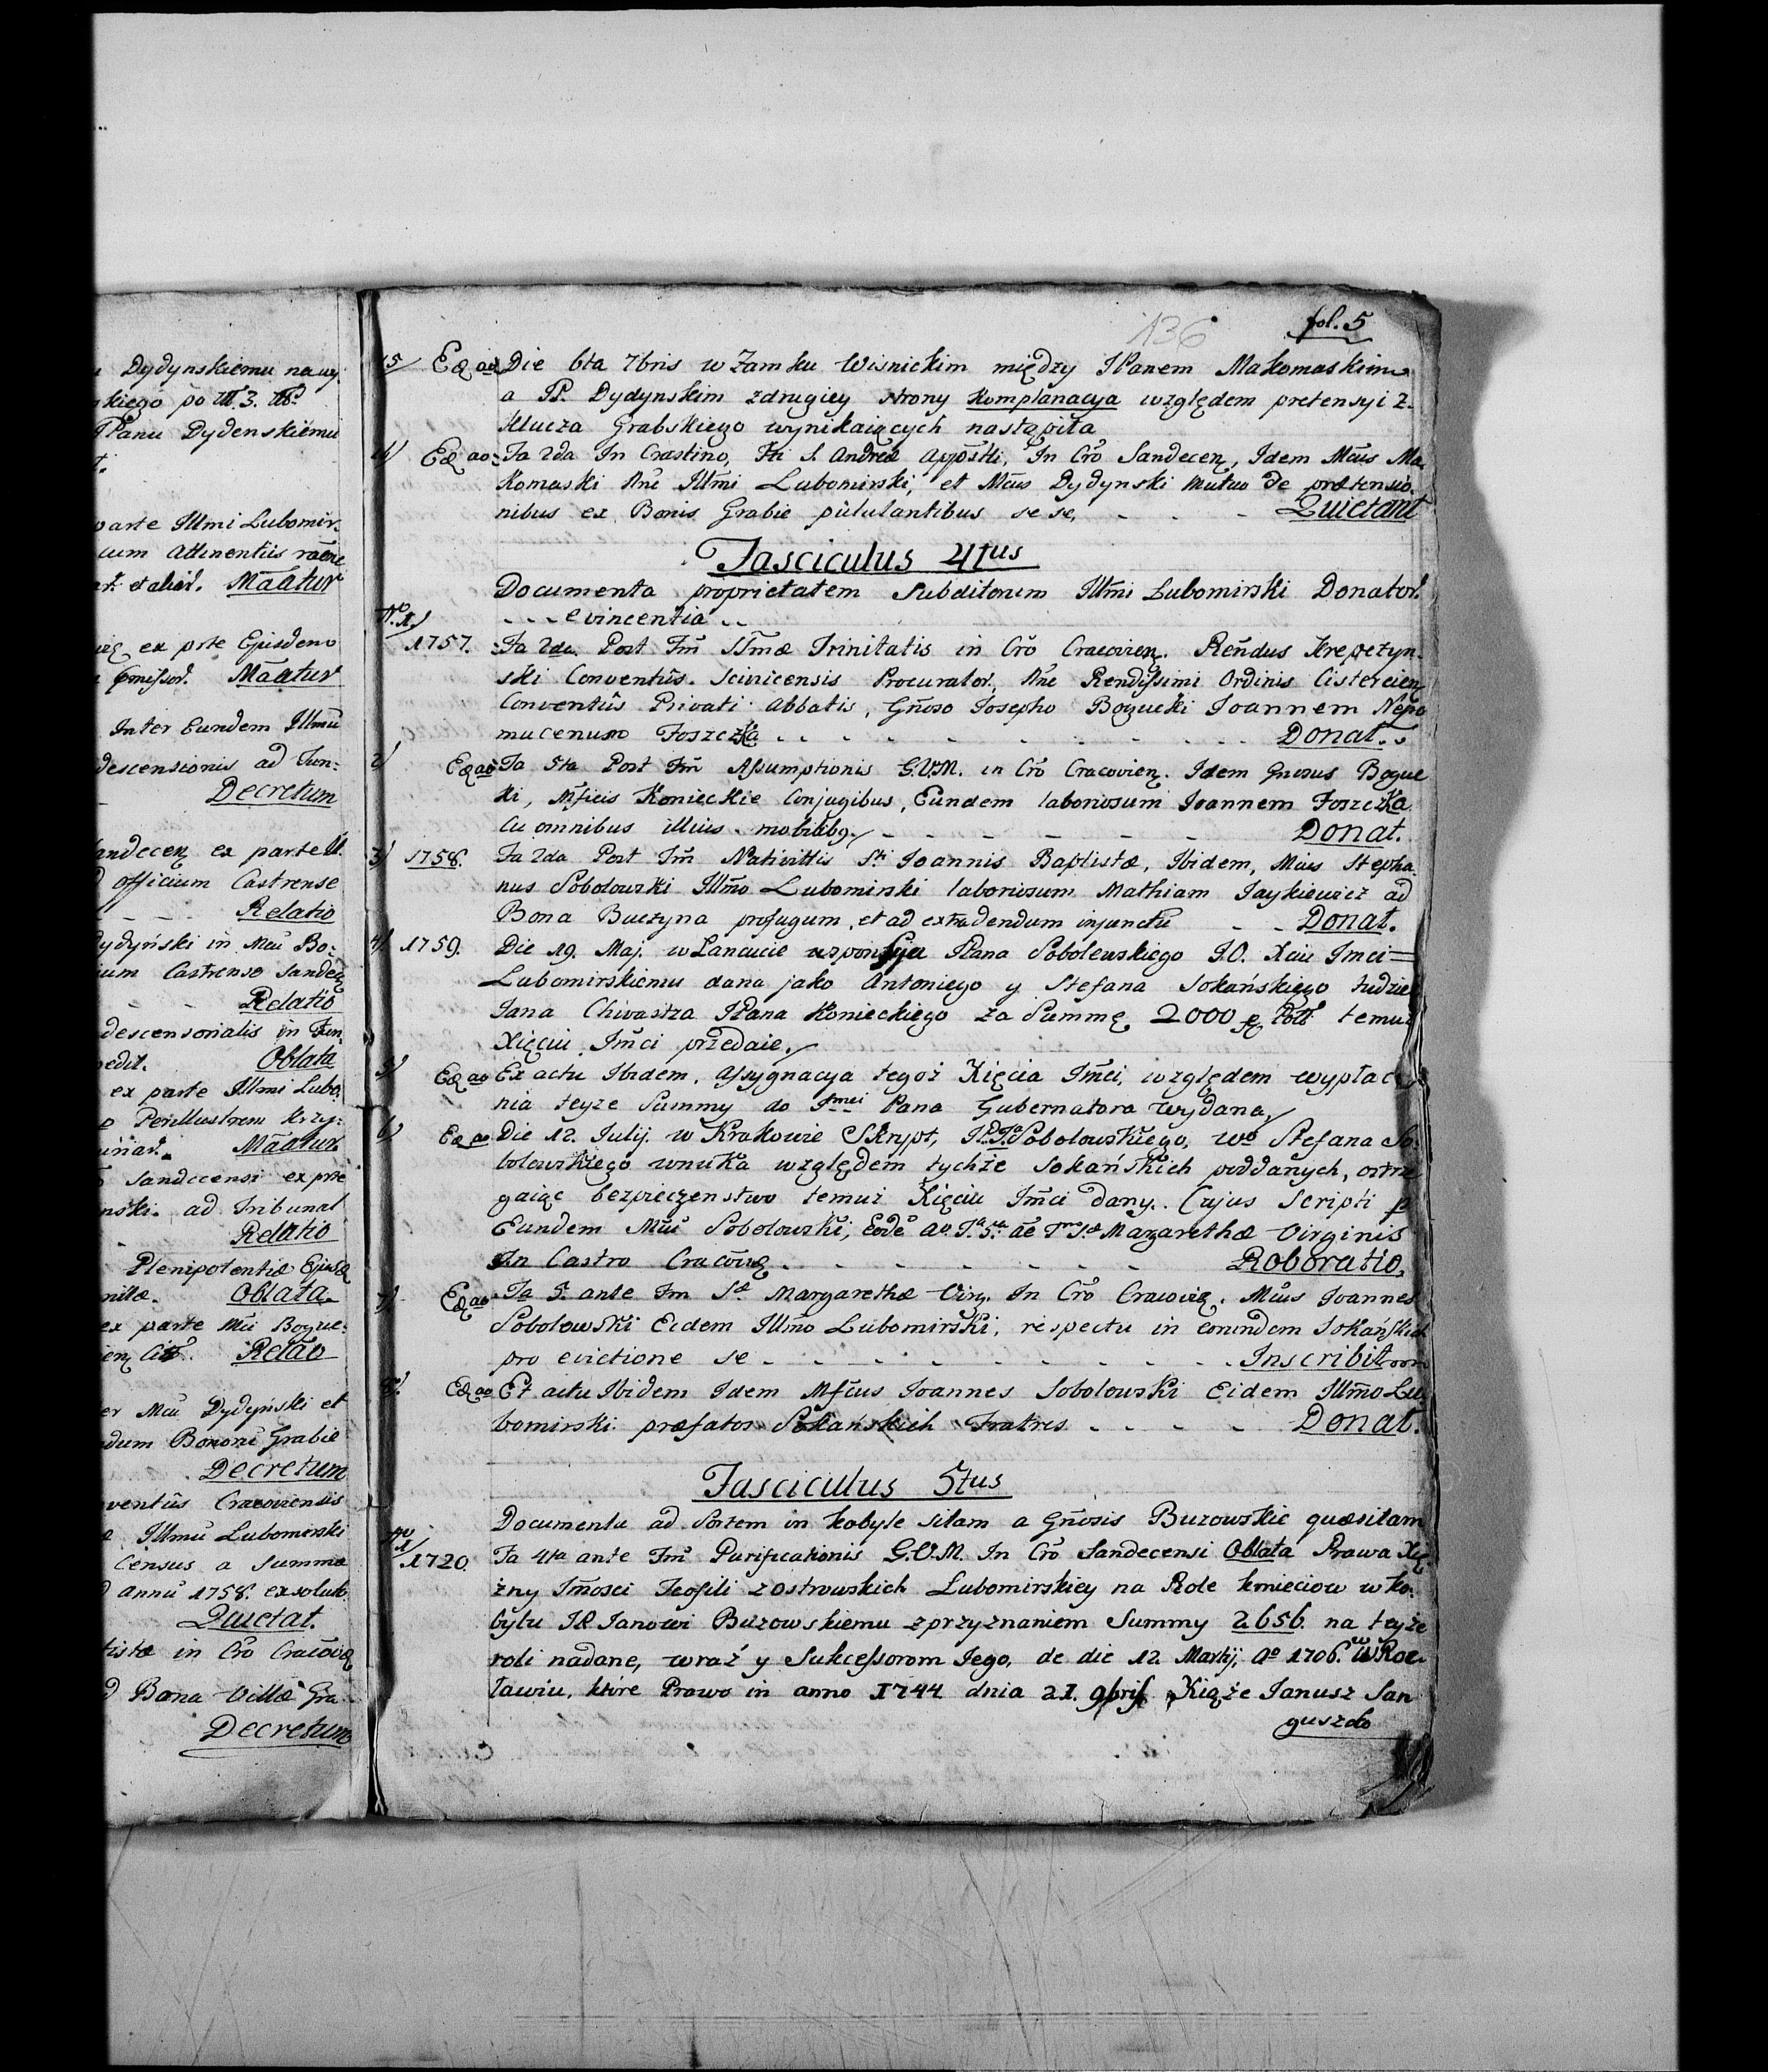 Dydynskiemu na wy
skiego po
JPanu Dydenskiemu
parte Illmi Lubomir.
cum Attinentiis
et aliar. Mãatur
ex pste Ejusdem
Emissor. Mãatur
Inter Eundem Illmũ
descensionis ad Fun:
Decretum
andecen ex parte Il.
officium Castrense
Relatio
Dydyński in Mcũ Bo:
ium Castrense Sandec
Relatio
descensorialis in Fun,
pedit. Oblata
ex parte Illmi Lubo.
Perillustrem Krzy:
Mãatur.
Sandecensi ex pste
nski. ad Tribunal
Relatio
Plenipotentiæ Ejusd
Oblata.
ex parte Mci Bogue:
Relão
er Mcũ Dydyński et
dum Bonorũ Grabie
Decretum
ventûs Cracoviensis
Illmũ Lubomirski
Census a Summa
annũ 1758. exsolut.
Quietat.
tistæ in Crô Cracoviẽ
Bona Villæ Gra
Decretum
136 fol. 5
15/ Eod ao Die 6ta 7bris w Zamku Wisnickim między JPanem Makomaskim
a JP. Dydynskim z drugiey strony Komplanacya względem pretensyi z
Klucza Grabskiego wynikaiących nastąpiła
16/ Eod ao: Fa 2da In Crastino, Fti S. Andreæ Appostli, In Crô Sandecen, Idem Mcus Ma.
Komaski Nñe Illmi Lubomirski, et Mcus Dydynski mutuo de prætensio.
nibus ex Bonis Grabie pullulantibus se se, - - - Quietant
Fasciculus 4tus
Documenta proprietatem Subditorum Illmi Lubomirski Donator.
- - - evincentia - -
No. 1./
1757. Fa 2da. Post Fm SSmæ Trinitatis in Crô Cracovien. Reñdus Krepezyn.
ski Conventûs. Scivicensis Procurator., Nñe Rendissimi Ordinis Cistercien
Conventûs Privati Abbatis, Gñoso Josepho Bogucki Joannem Nepo
mucenum Foszczka - - - - - - Donat.
2/ Eod ao Fa 5ta Post Fm Assumptionis G.V.M. in Crô Cracovien. Idem Gnosus Bogue
ki, Mficis Konieckie Conjugibus, Eundem laboriosum Joannem Foszczka
Cu omnibus illius mobilibq./ - - - - - Donat.
3/ 1758. Fa 2da Post Fm Nativittis Sti Joannis Baptistæ, Ibidem, Mcus Stepha.
nus Sobolowski Illmo Lubomirski laboriosum Mathiam Jaykiewicz ad
Bona Buczyna profugum, et ad extradendum injunctũ - - Donat.
4/ 1759. Die 19. Maj. w Lancucie responssya Pana Sobolewskiego J.O. Xciu Imci=
Lubomirskiemu dana jako Antoniego y Stefana Sokańskiego tudziez
Jana Chwastra JPana Konieckiego za Summę 2000 temuż
Xięciu Jmci przedaie./
5/ Eod ao Ex actu Ibidem. Assygnacya tegoż Xięcia Jmci, względem wypłace
nia teyze Summy do Jmci Pana Gubernatora wydana./
6/ Eod ao Die 12. Julij. w Krakowie Skrypt, Sobolowskiego, Stefana So.
bolowskiego wnuka względem tychże Sokańskich poddanych, ostrze
gaiąc bezpieczenstwo temuż Xięciu Jmci dany.. Cujus Scripti p
Eundem Mcũ Sobolowski, Margarethæ Virginis
In Castro Cracovien - - - - - - Roboratio,
7/ Eod ao Fa 5. ante Fm Sæ Margarethæ Virg. In Crô Cracovien. Mcus Joannes
Sobolowski Eidem Illmo Lubomirski, respectu in eorundem Sokańskich
pro evictione se - - - - - - Inscribit
8/ Eod ao Et actu Ibidem Idem Mfcus Joannes Sobolowski Eidem Illmo Lu
bomirski præfatos Sokańskich Fratres. - - - - Donat.
Fasciculus 5tus
Documenta ad Sortem in Kobyle sitam a Gñosis Buzowskie quæsitam
No 1/
1720. Fa 4ta ante Fm Purificationis G.V.M. In Crô Sandecensi Oblata Prawa Xię.
żny Jmosci Teofili z Ostrowskich Lubomirskiey na Role kmieciow w Ko.
bylu JP. Janowi Buzowskiemu z przyznaniem Summy 2656. na teyże
roli nadane, wraz y Sukcessorom Jego, de die 12. Martij, Ao 1706. w Roc.
ławiu, które Prawo in anno 1744 dnia 21. 9bris Xiąże Janusz San
guszko